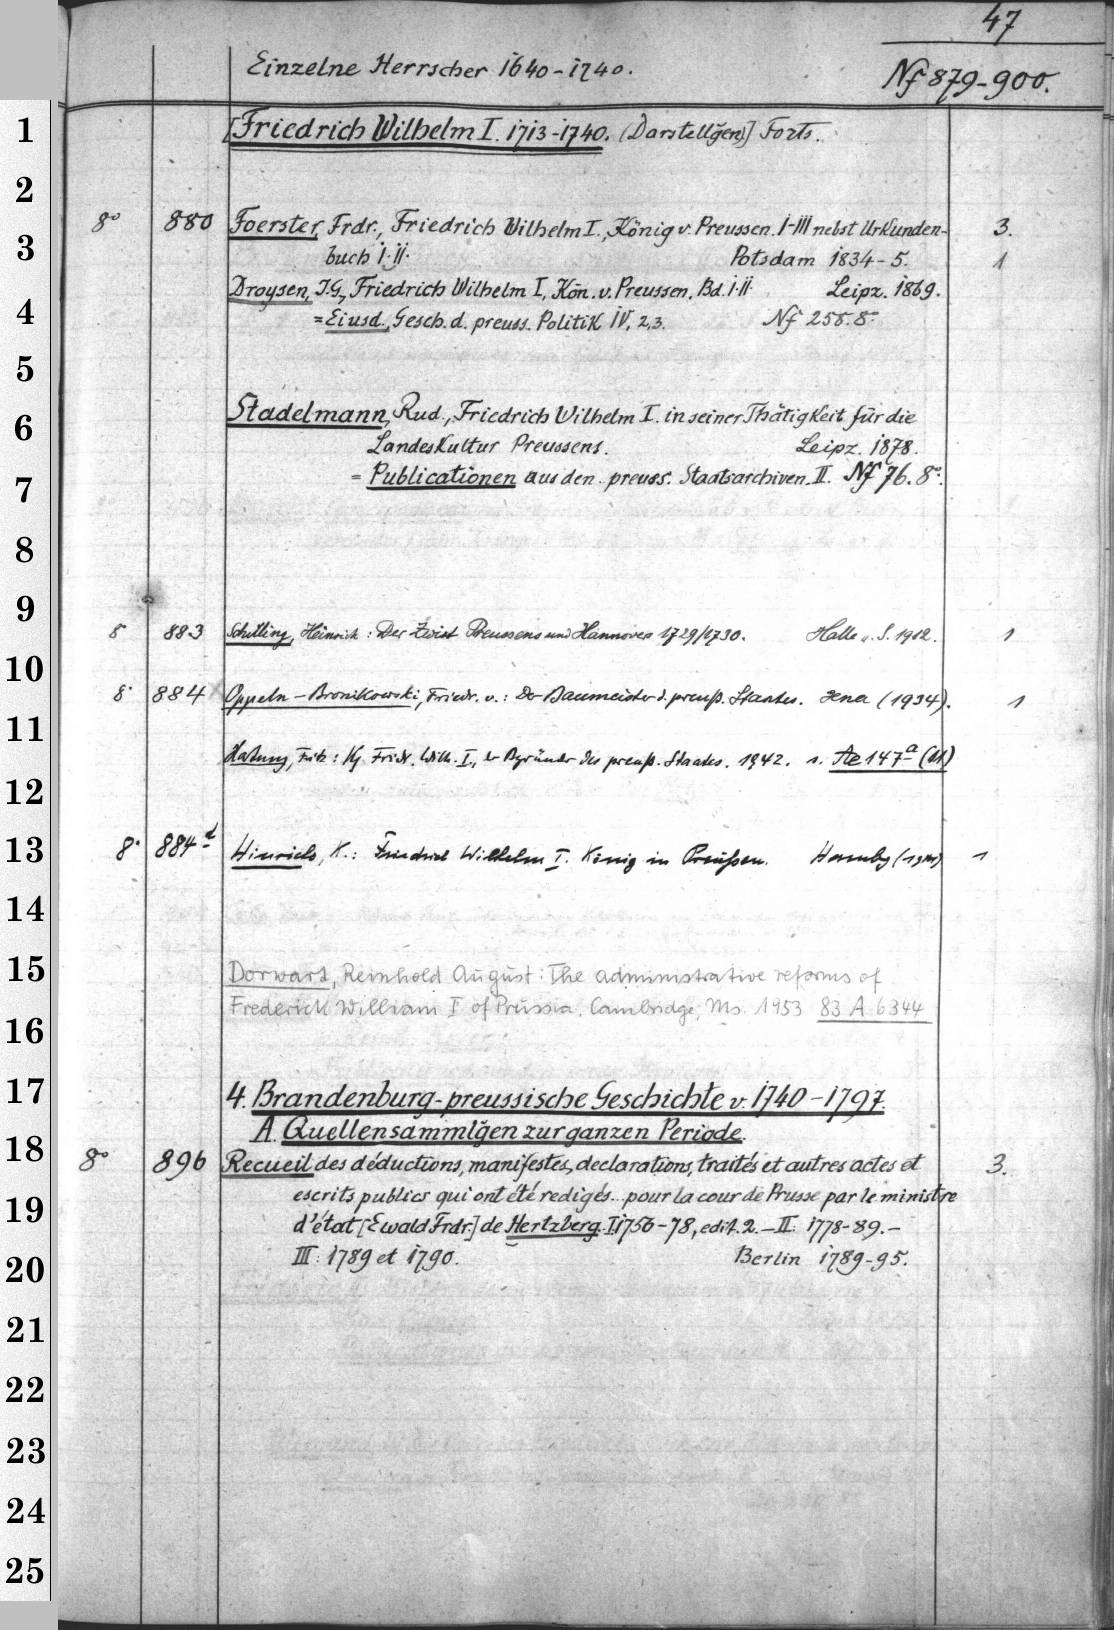 47
Einzelne Herrscher 1640-1740.
Nf 879-900.
1
[Friedrich Wilhelm I. 1713-1740. (Darstellg̃en)] Forts.
2
8° 880 Foerster, Frdr., Friedrich Wilhelm I., König v. Preussen. I-III nebst Urkunden- 3.
3
buch I-II. Potsdam 1834-5. 1
Droysen, J.G., Friedrich Wilhelm I, Kön. v. Preussen, Bd. I-II Leipz. 1869.
4
=Eiusd., Gesch. d. preuss. Politik IV, 2,3. Nf 258.8°
5
Stadelmann, Rud., Friedrich Wilhelm I. in seiner Thätigkeit für die
6
Landeskultur Preussens. Leipz. 1878.
= Publicationen aus den preuss. Staatsarchiven. II. Nf 76. 8°.
7
8
9
8° 883 Schilling, Heinrich: Der Zwist Preussens und Hannovers 1729/1730. Halle a. S. 1912. 1
10
8° 884 Oppeln-Bronikowski, Friedr. v.: Der Baumeister d. preuß. Staates. Jena (1934). 1
11
Hartung, Fritz: Kg. Friedr. Wilh. I., der Begründer des preuß. Staates. 1942. s. Ae 147a (11)
12
8° 884d Hinrichs, K.: Friedrich Wilhelm I. König in Preußen. 1
13
14
15
Dorwart, Reinhold August: The administrative reforms of
Frederick William I of Prussia. Cambridge, Ms. 1953 83 A 6344
16
17
4. Brandenburg-preussische Geschichte v. 1740-1797.
A. Quellensammlg̃en zur ganzen Periode.
18
8° 896 Recueil des déductions, manifestes, declarations, traités et autres actes et 3.
escrits publics qui ont été redigés... pour la cour de Prusse par le ministre
19
d'état [Ewald Frdr.] de Hertzberg. I: 1756-78, edit. 2. - II: 1778-89. -
III: 1789 et 1790. Berlin 1789-95.
20
21
22
23
24
25